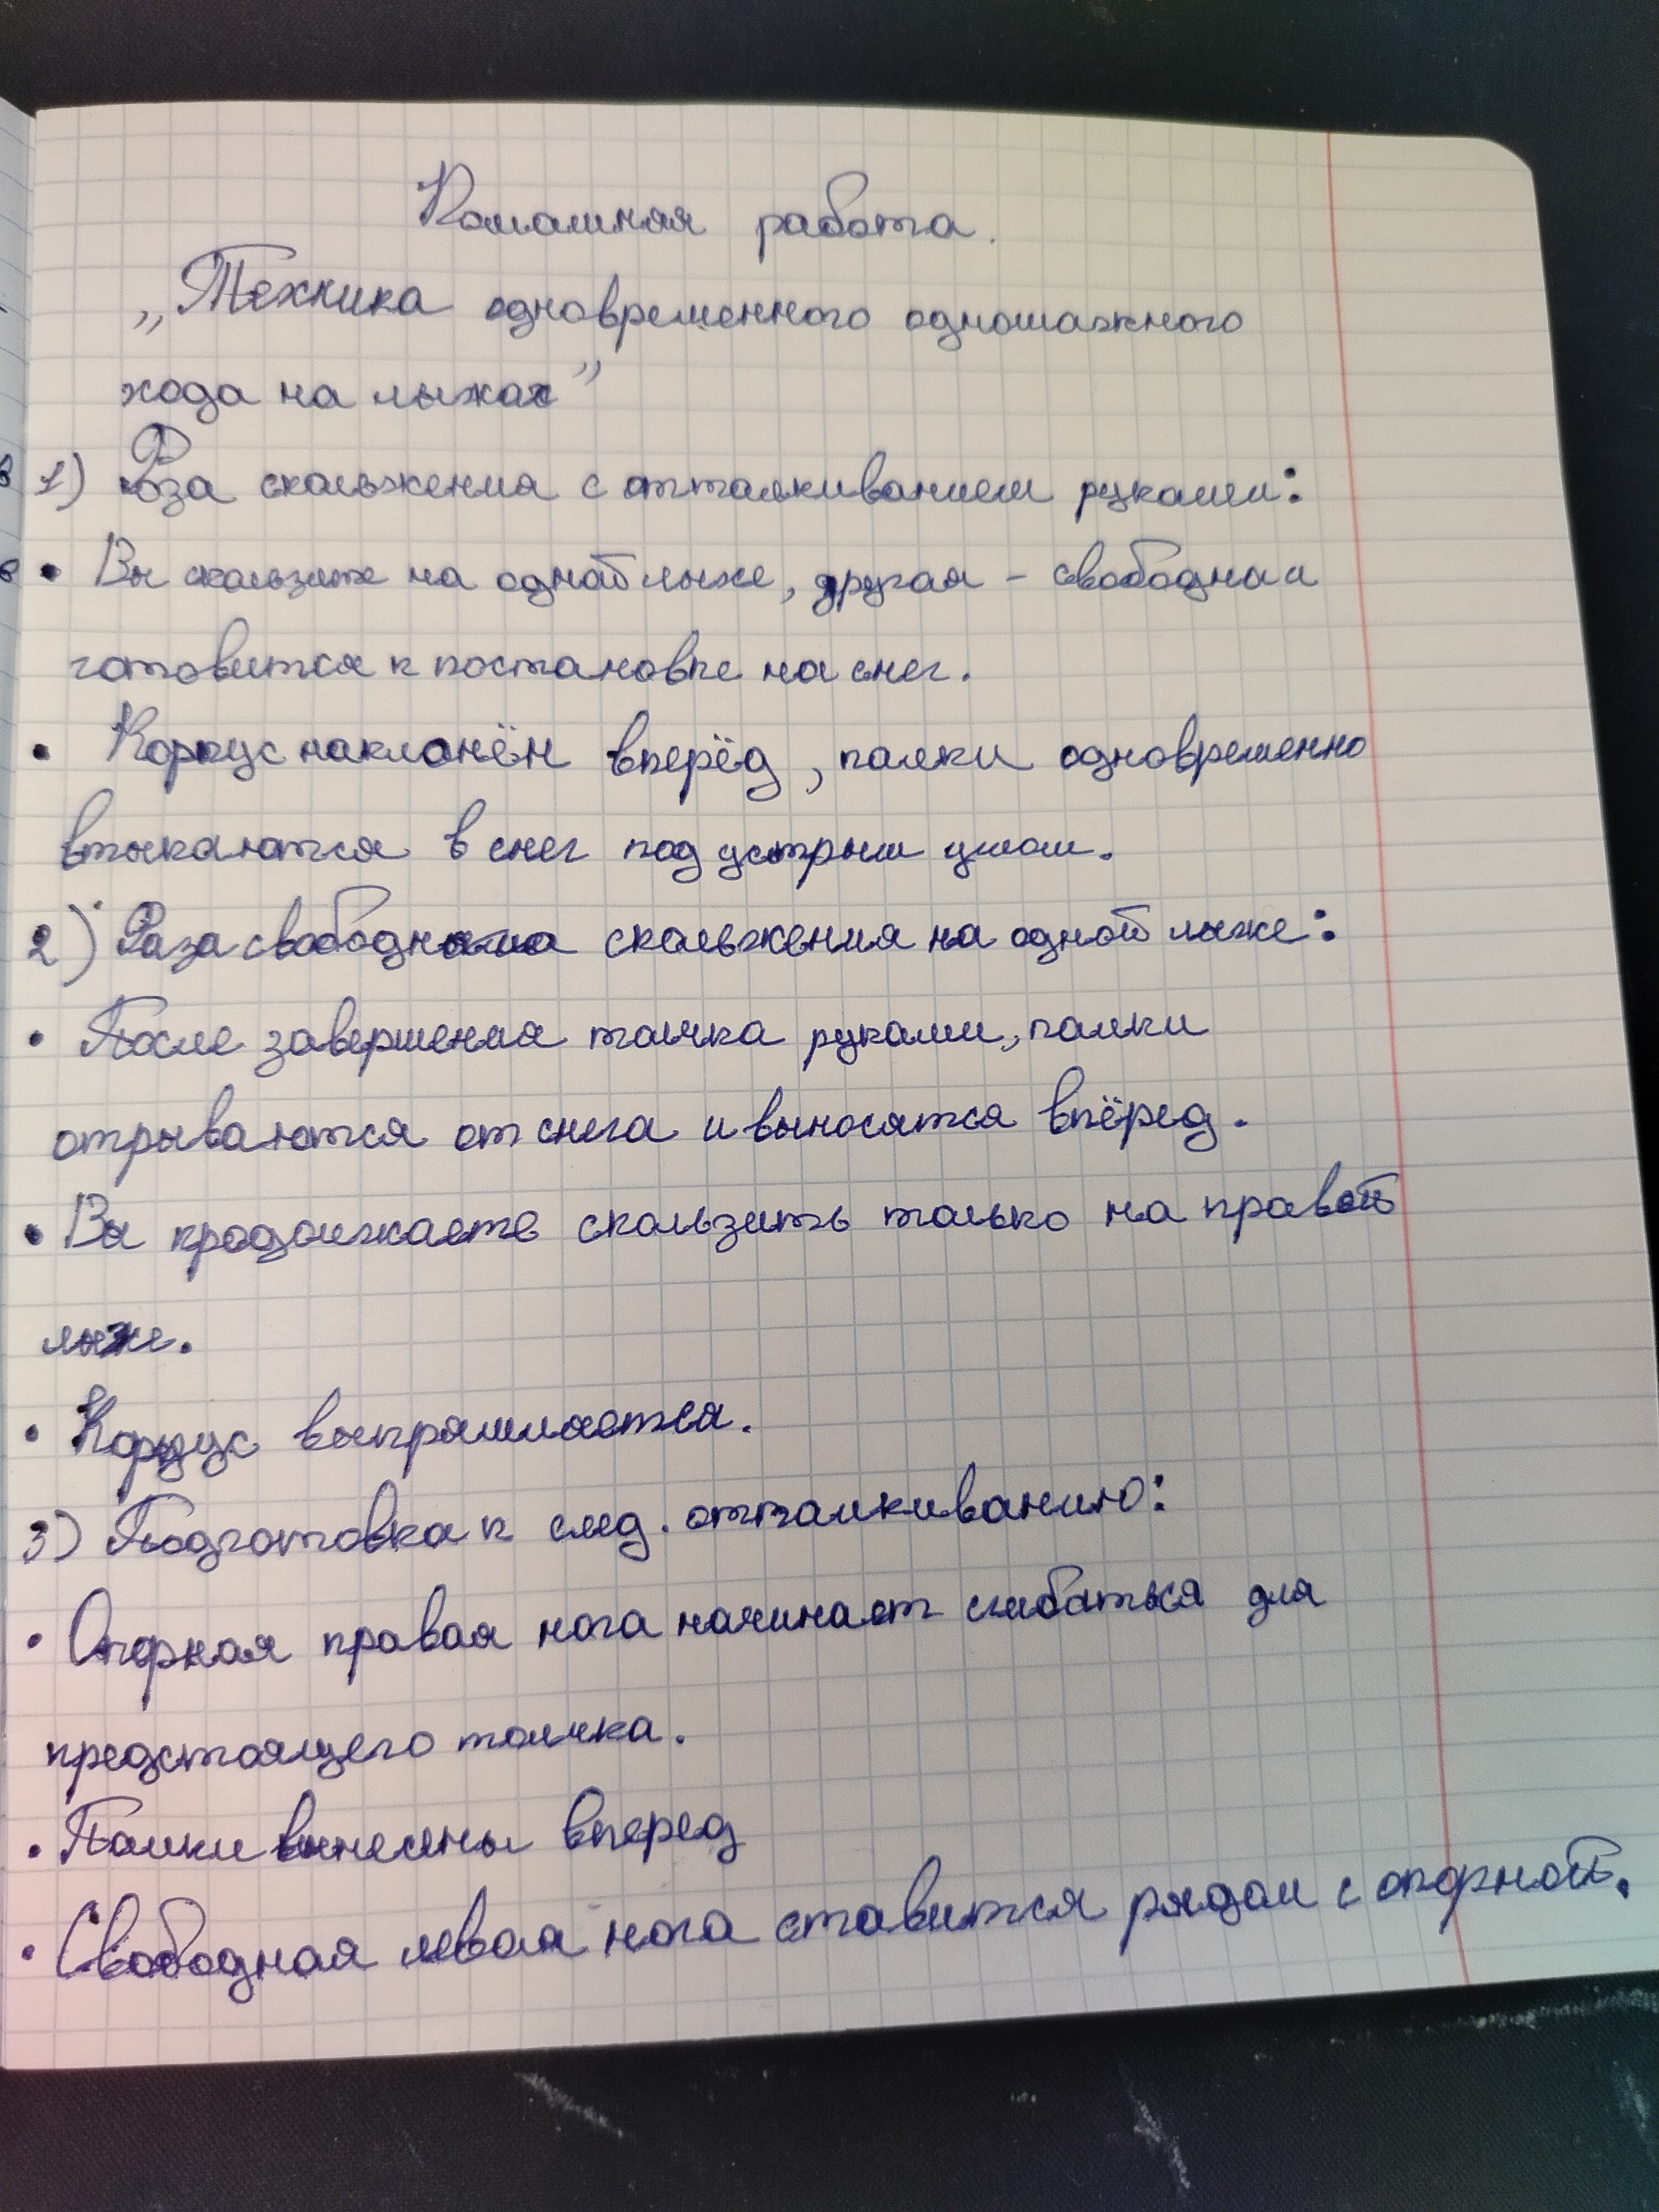 Домашняя работа.
„Техника одновременного одношажного
хода на лыжах”
1) Фаза скольжения с отталкиванием руками:
• Вы скользите на одной лыже, другая - свободная
готовится к постановке на снег.
• Корпус наклонён вперёд, палки одновременно
втыкаются в снег под устрым углом.
2) Фаза свободного скольжения на одной лыже:
• После завершения толчка руками, палки
отрываются от снега и выносятся впёред.
• Вы продолжаете скользить только на правой
лыже.
• Корпус выпрямляется.
3) Подготовка к след. отталкиванию:
• Опорная правая нога начинает сгибаться для
предстоящего толчка.
• Палки вынесены вперед
• Свободная левая нога ставится рядом с опорной.